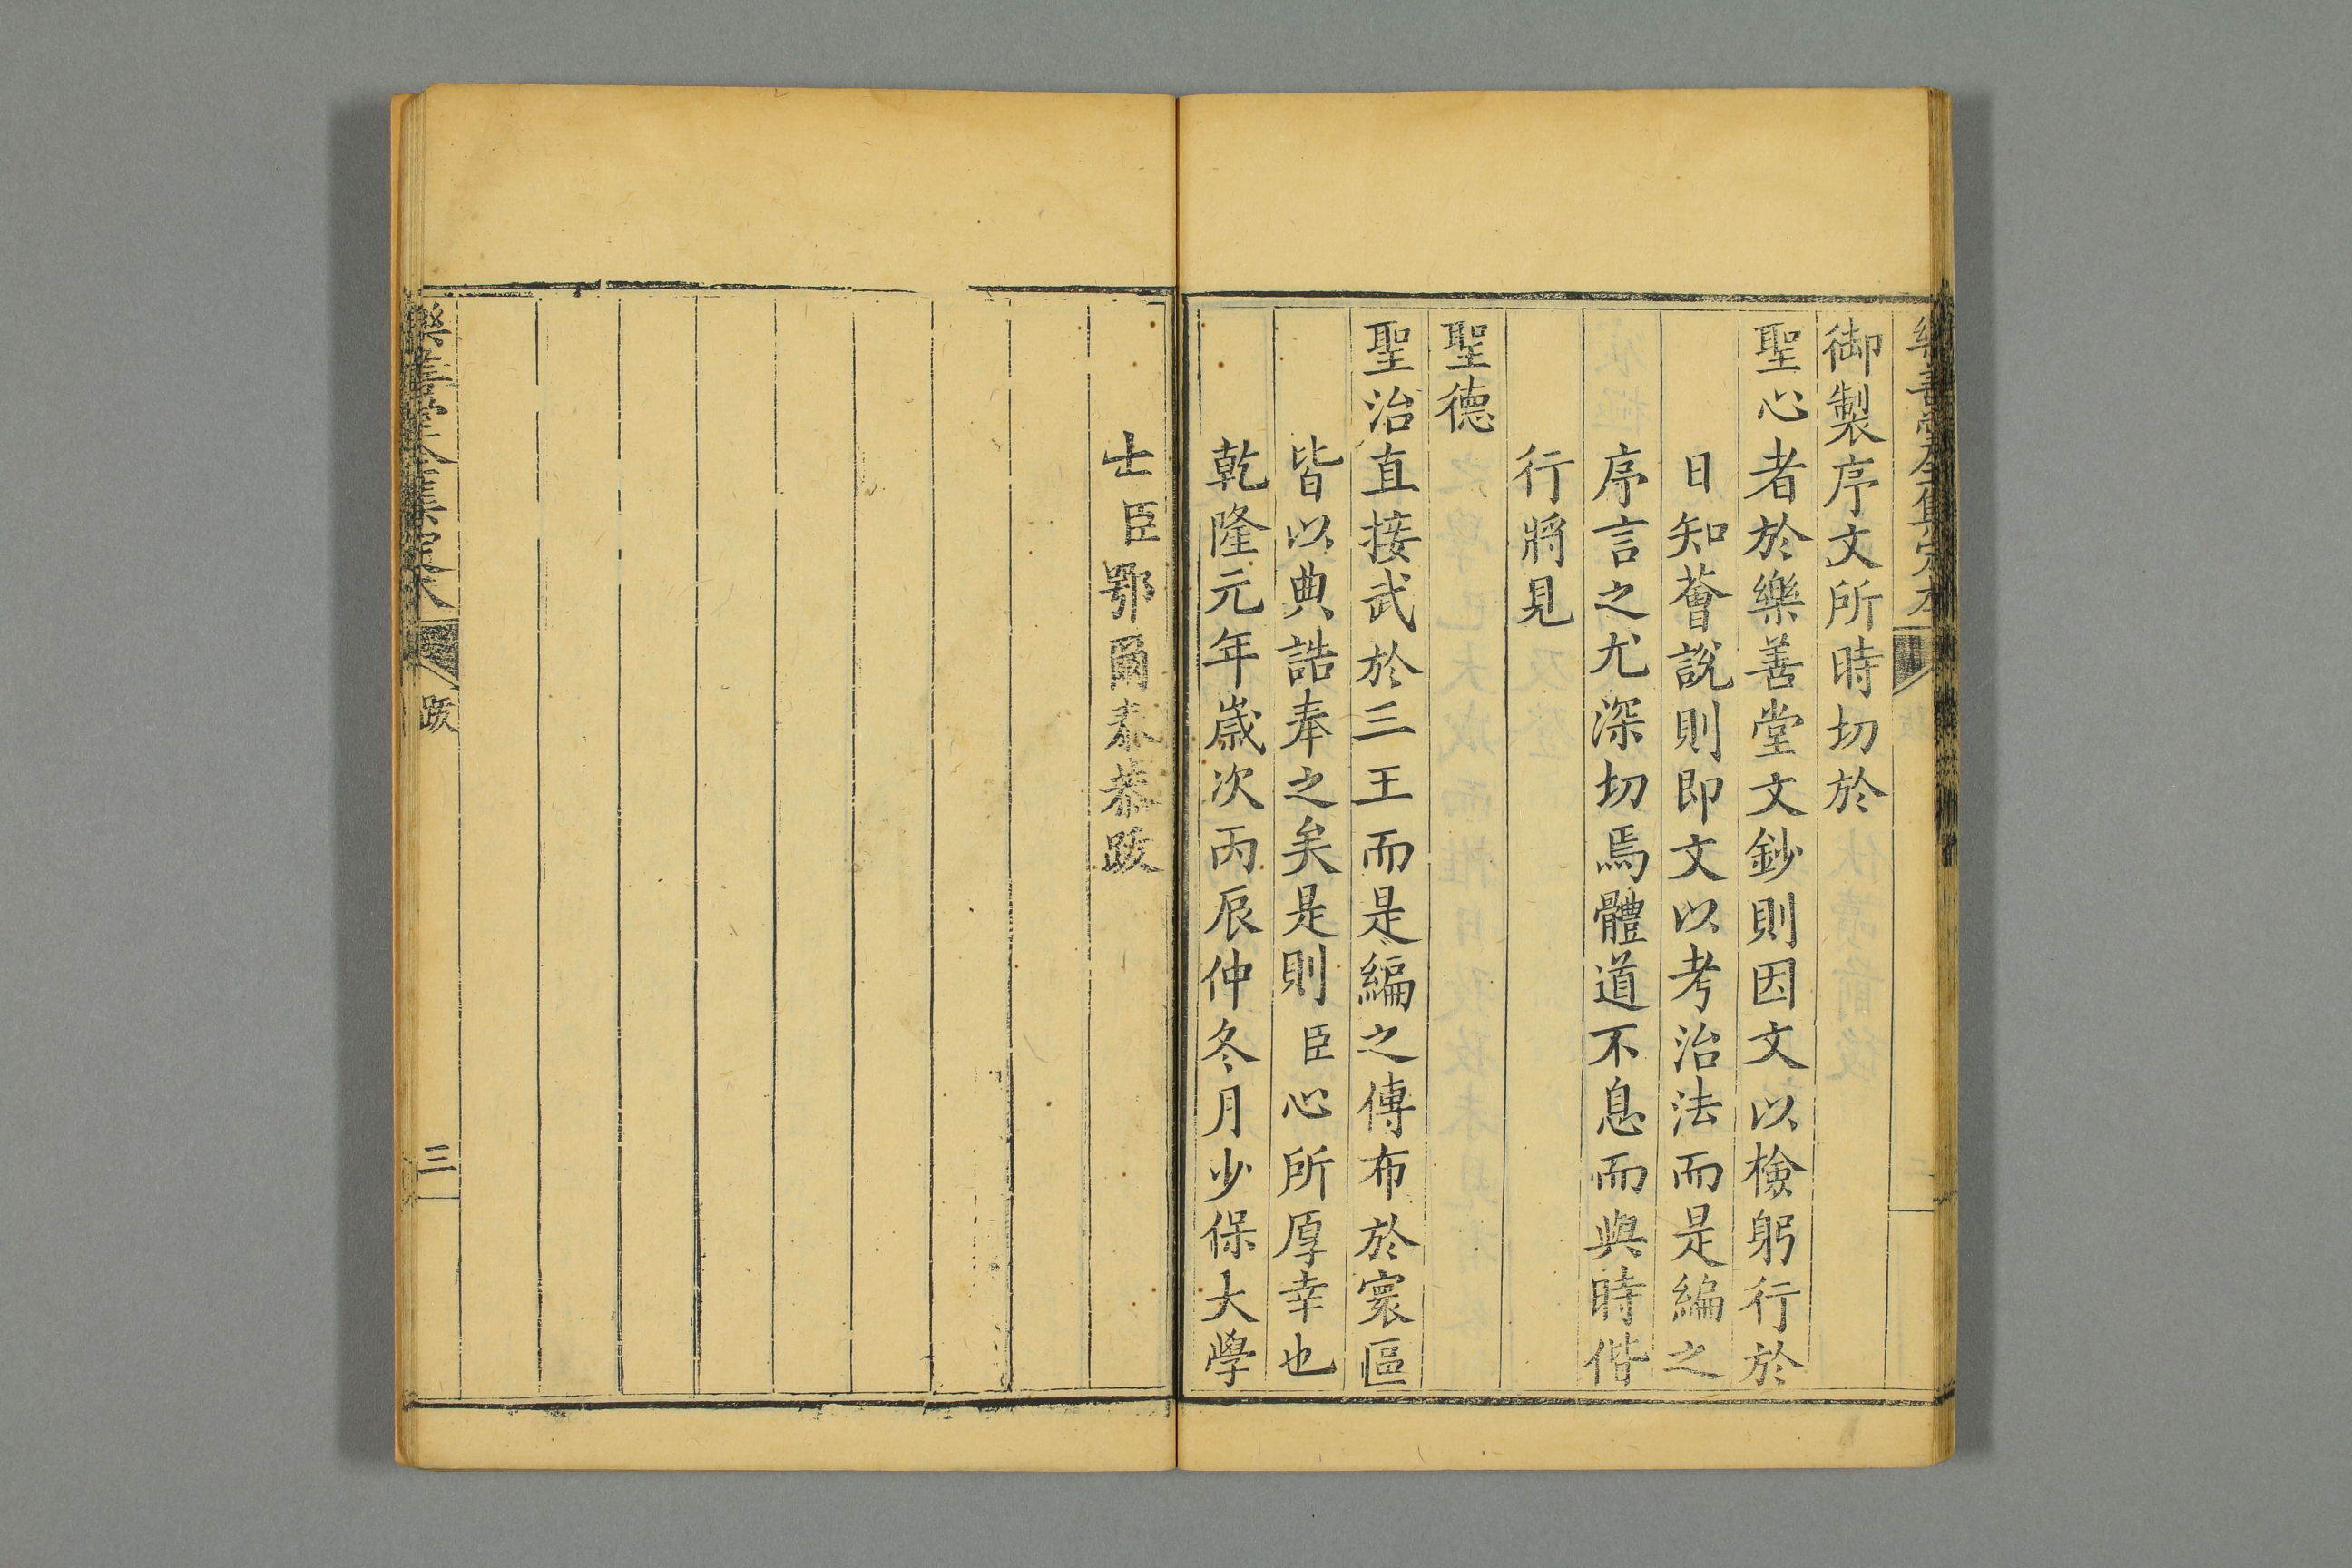 樂善堂全集定本
御製序文所時切於
聖心者於樂善堂文鈔則因文以檢躬行於
日知薈說則即文以考治法而是編之
序言之尤深切焉體道不息而與時偕
行將見
聖德
聖治直接武於三王而是編之傳布於寰區
皆以典誥奉之矣是則臣心所厚幸也
乾隆元年歲次丙辰仲冬月少保大學
士臣鄂爾泰恭跋
樂善堂全集定本
跋
三